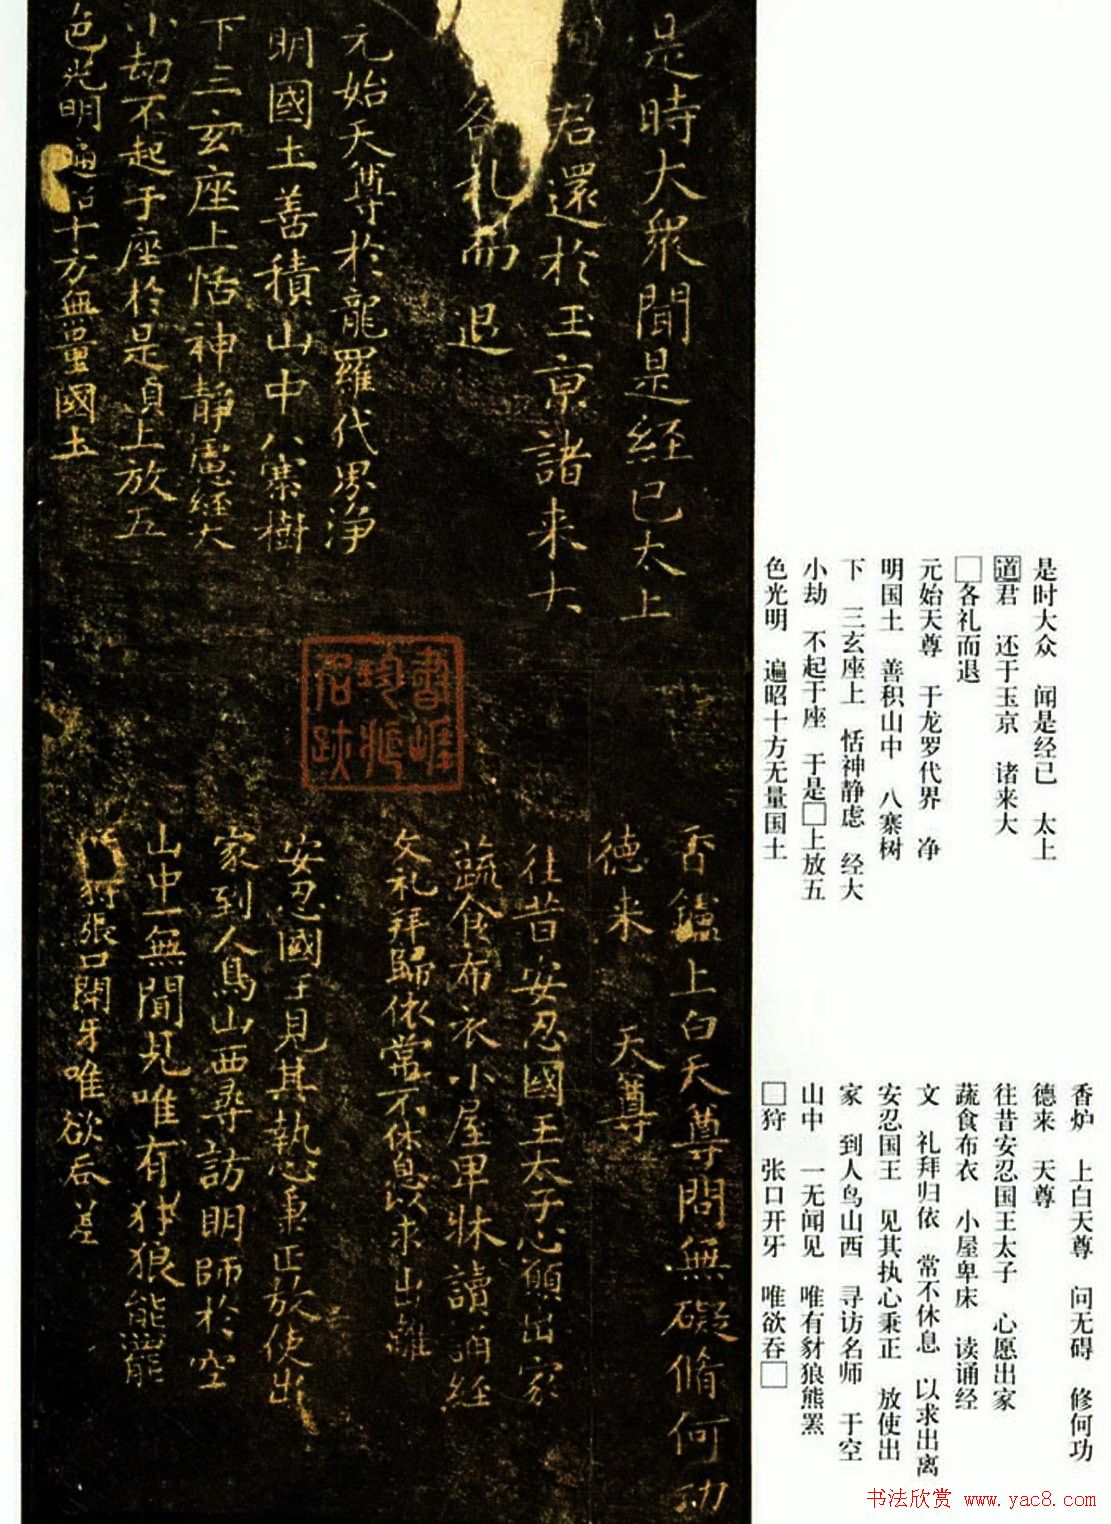 是時大衆聞是經已太上
君還於玉京諸来大
各礼而退
元始天尊於龍羅代界浄
明國土善積山中八寨樹
下三玄座上恬神静慮經大
小劫不起于座於是貞上放五
色光明遍昭十方無量國土
香鑪上白天尊問無礙脩何功
德来 天尊
往昔安忍國王太子心願出家
蔬食布衣小屋卑牀讀誦經
文礼拜歸依常不休息以求出離
安忍國王見其執心秉正放使出
家到人鳥山西尋訪明師於空
山中一無聞見唯有犲狼能羆
狩張口開牙唯欲吞
書畫珍藏名跡
是时大众 闻是经已 太上
道君 还于玉京 诸来大
□各礼而退
元始天尊 于龙罗代界 净
明国土 善积山中 八寨树
下 三玄座上 恬神静虑 经大
小劫 不起于座 于是□上放五
色光明 遍昭十方无量国土
香炉 上白天尊 问无碍 修何功
德来 天尊
往昔安忍国王太子 心愿出家
蔬食布衣 小屋卑床 读诵经
文 礼拜归依 常不休息 以求出离
安忍国王 见其执心秉正 放使出
家 到人鸟山西 寻访名师 于空
山中 一无闻见 唯有豺狼熊罴
□狩 张口开牙 唯欲吞□
书法欣赏 www.yac8.com